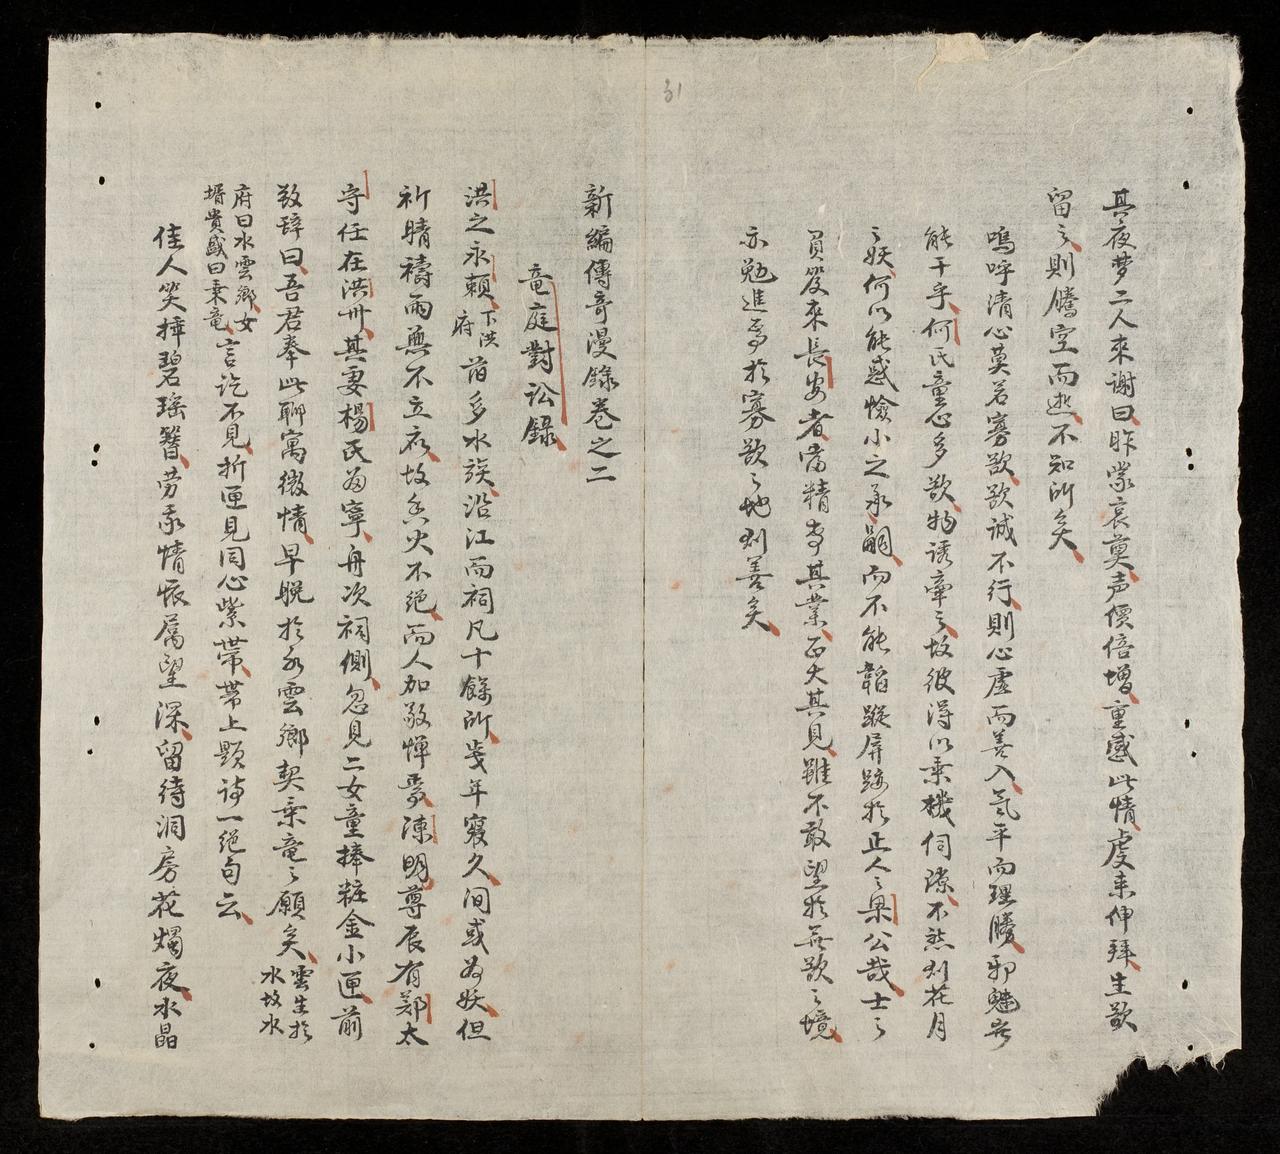 31
其夜梦二人來謝曰昨蒙哀奠声價倍增重感此情虔来伸拜生欲
留之則騰空而逝不知所矣
嗚呼清心莫若寡欲欲誠不行則心虚而善入氣平而理勝邪魅安
能干乎何氏童心多欲物誘牽之故彼得以乘機伺隙不然則花月
之妖何以能惑憸小之承嗣而不能韜蹤屏跡於正人之梁公哉士之
負笈來長安者當精專其業正大其見雖不敢望於無欲之境
亦勉進焉於寡欲之地則善矣
新編傳奇漫錄卷之二
竜庭對訟錄
洪之永賴下洪府前多水族沿江而祠凡十餘所歲年寖久间或为妖但
祈晴禱雨無不立应故香火不绝而人加敬惮焉陳明尊辰有鄭太
守任在洪州其妻楊氏为寧舟次祠側忽見二女童捧粧金小匣前
致辞曰吾君奉此聊寓微情早晚於水雲鄉契乘竜之願矣雲生於水故水
府曰水雲鄉女壻貴盛曰乘竜言訖不見折匣見同心紫带带上题诗一绝句云
佳人笑揷碧瑤簪劳我情怀属望深留待洞房花燭夜水晶